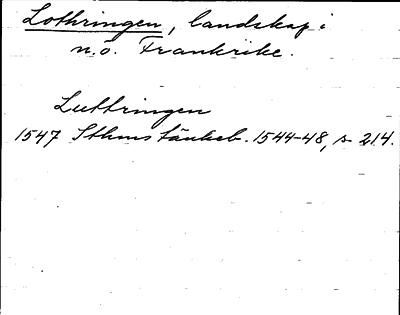 Lothringen, landskap i
n.ö. Frankrike.
Luttringen
1547 Sthms tänkeb. 1544-48, s 214.